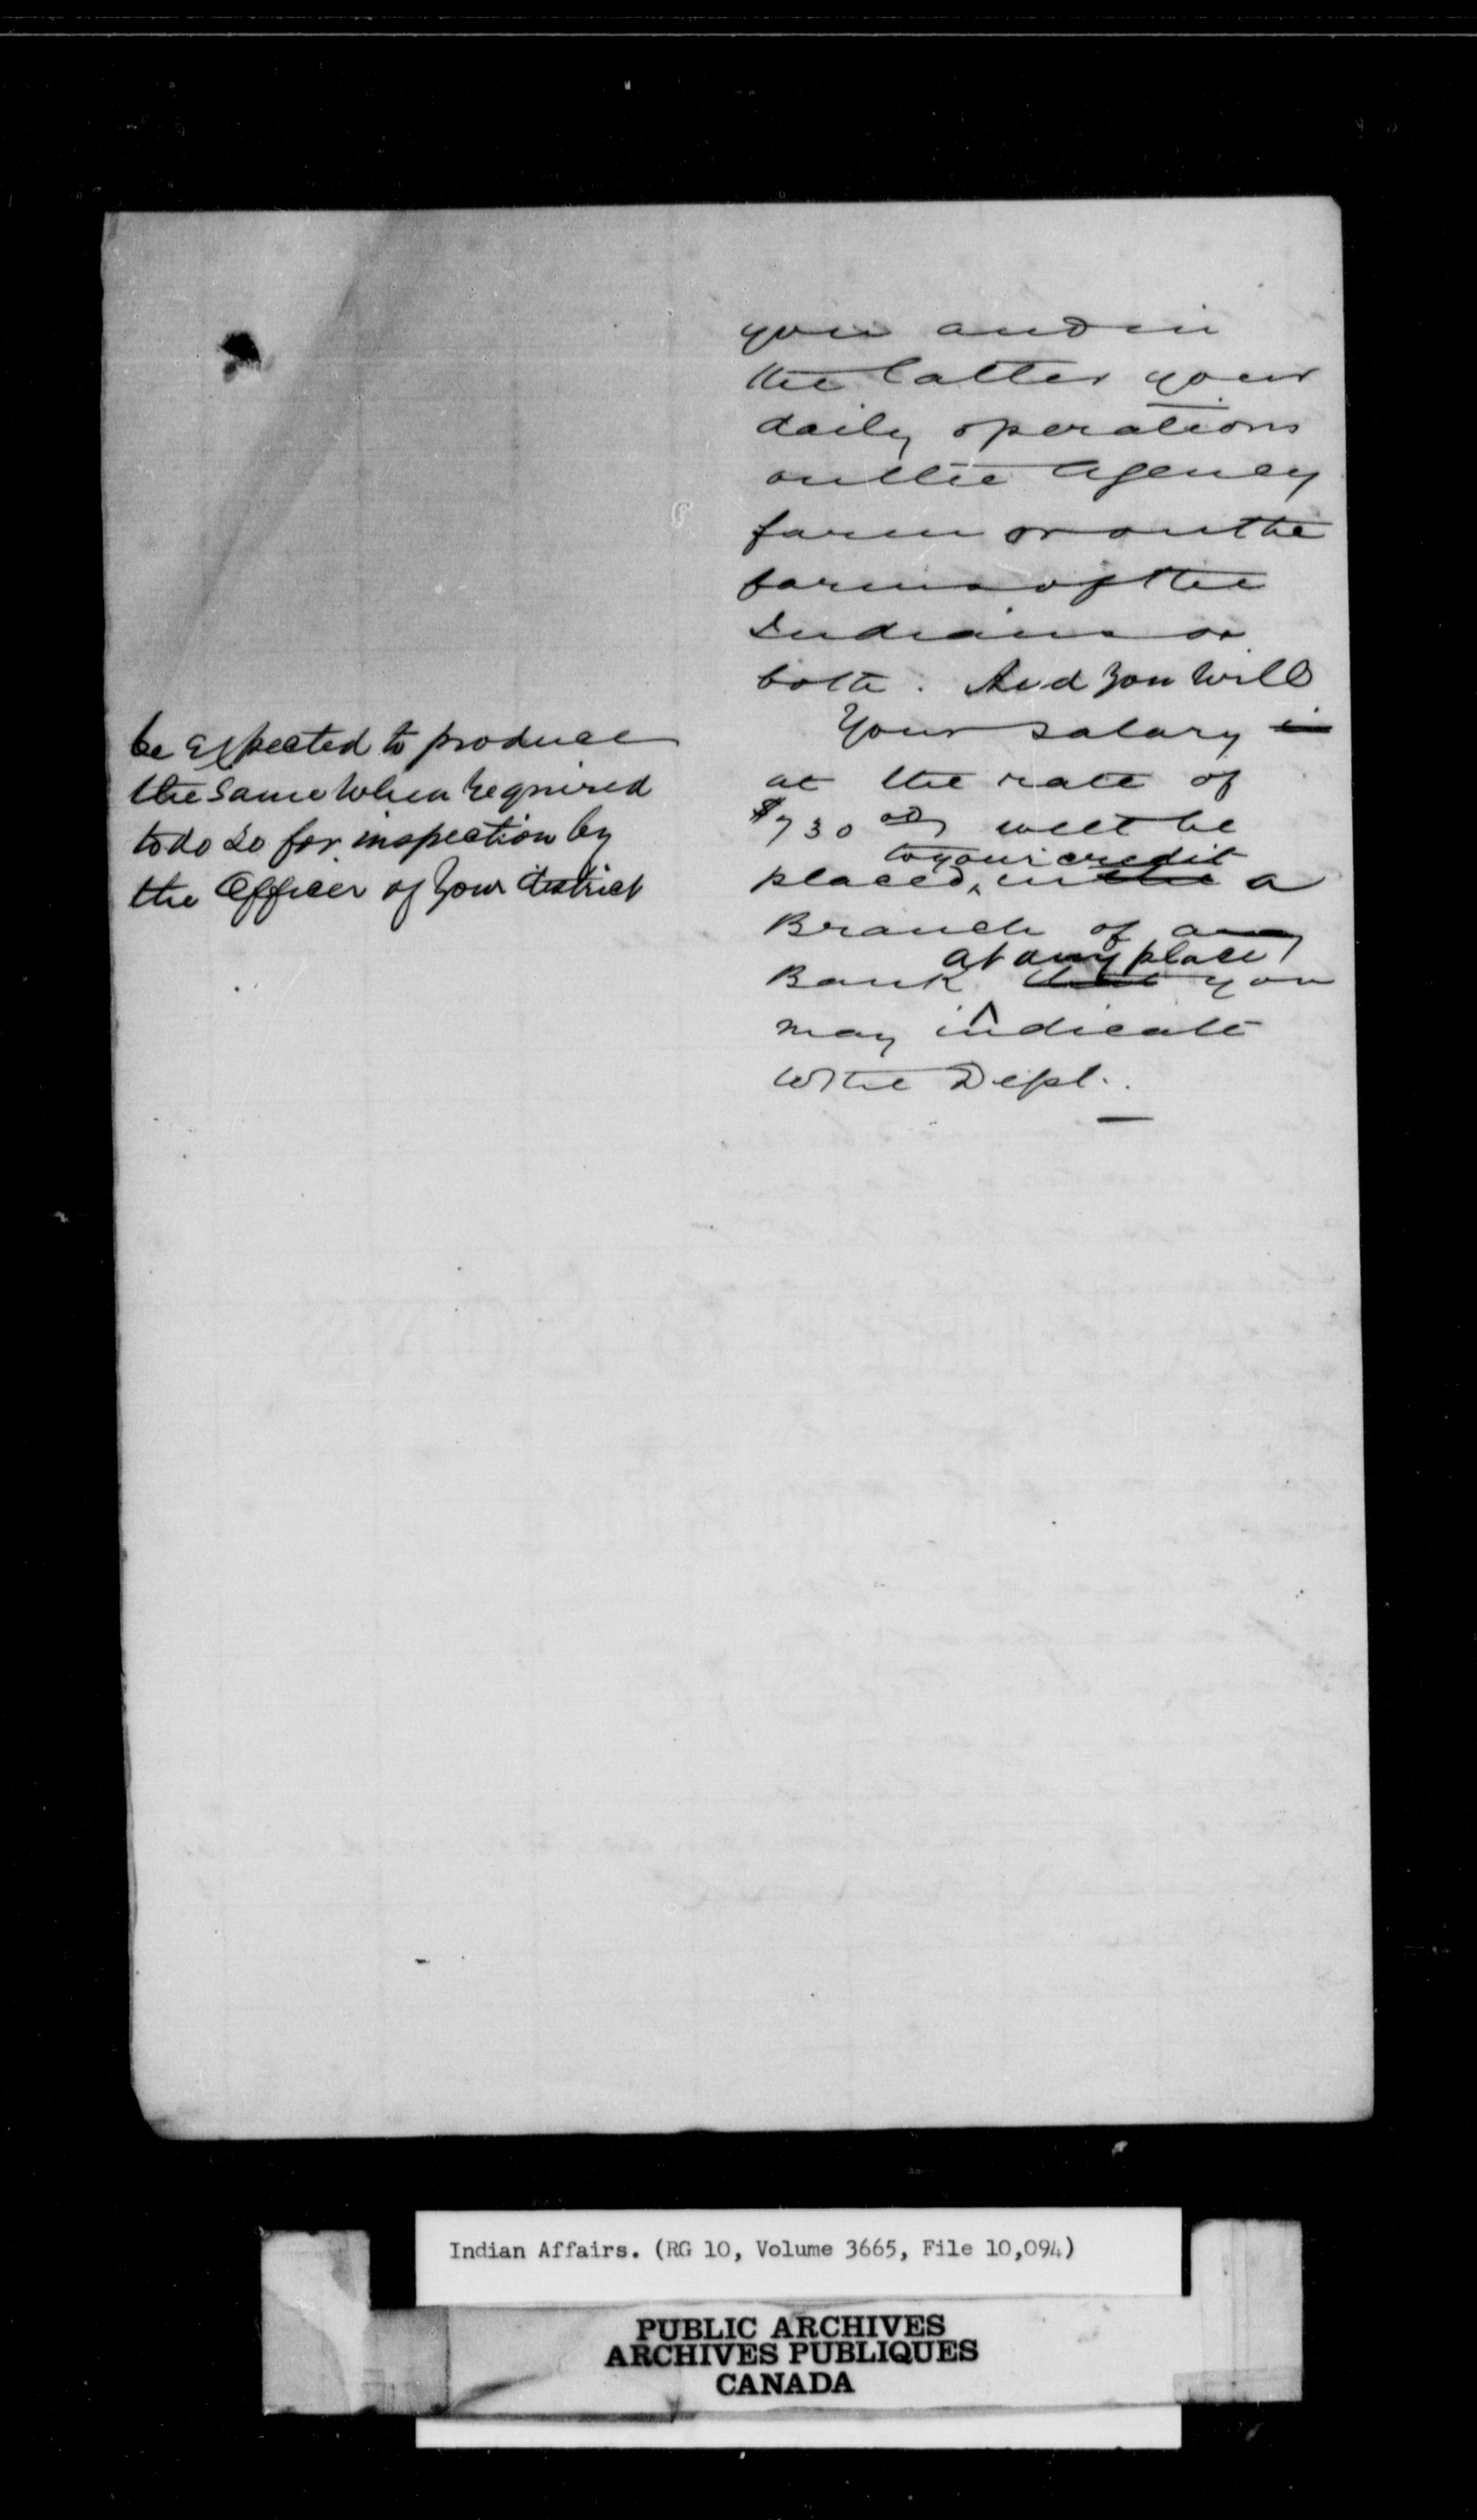 you and in
the latter your
daily operations
on the Agency
farm or on the
farms of the
Indians or
both. And you will
be expected to produce
the same when required
to do so for inspection by
the Officer of your district
Your salary in
at the rate of
$730 00 will be
to your credit
placed in the a
Branch of any
at any place
Bank that you
may indicate
to the Dept.
Indian Affairs. (RG 10, Volume 3665, File 10,094)
PUBLIC ARCHIVES
ARCHIVES PUBLIQUES
CANADA